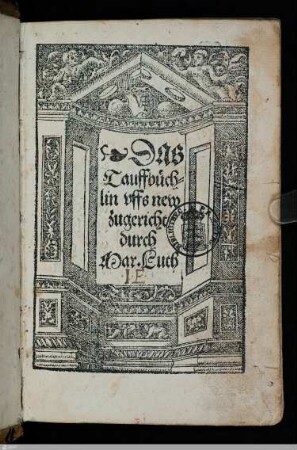 DAs
Tauffbuͤch-
lin vffs new
zůgericht
durch
Mar. Luth